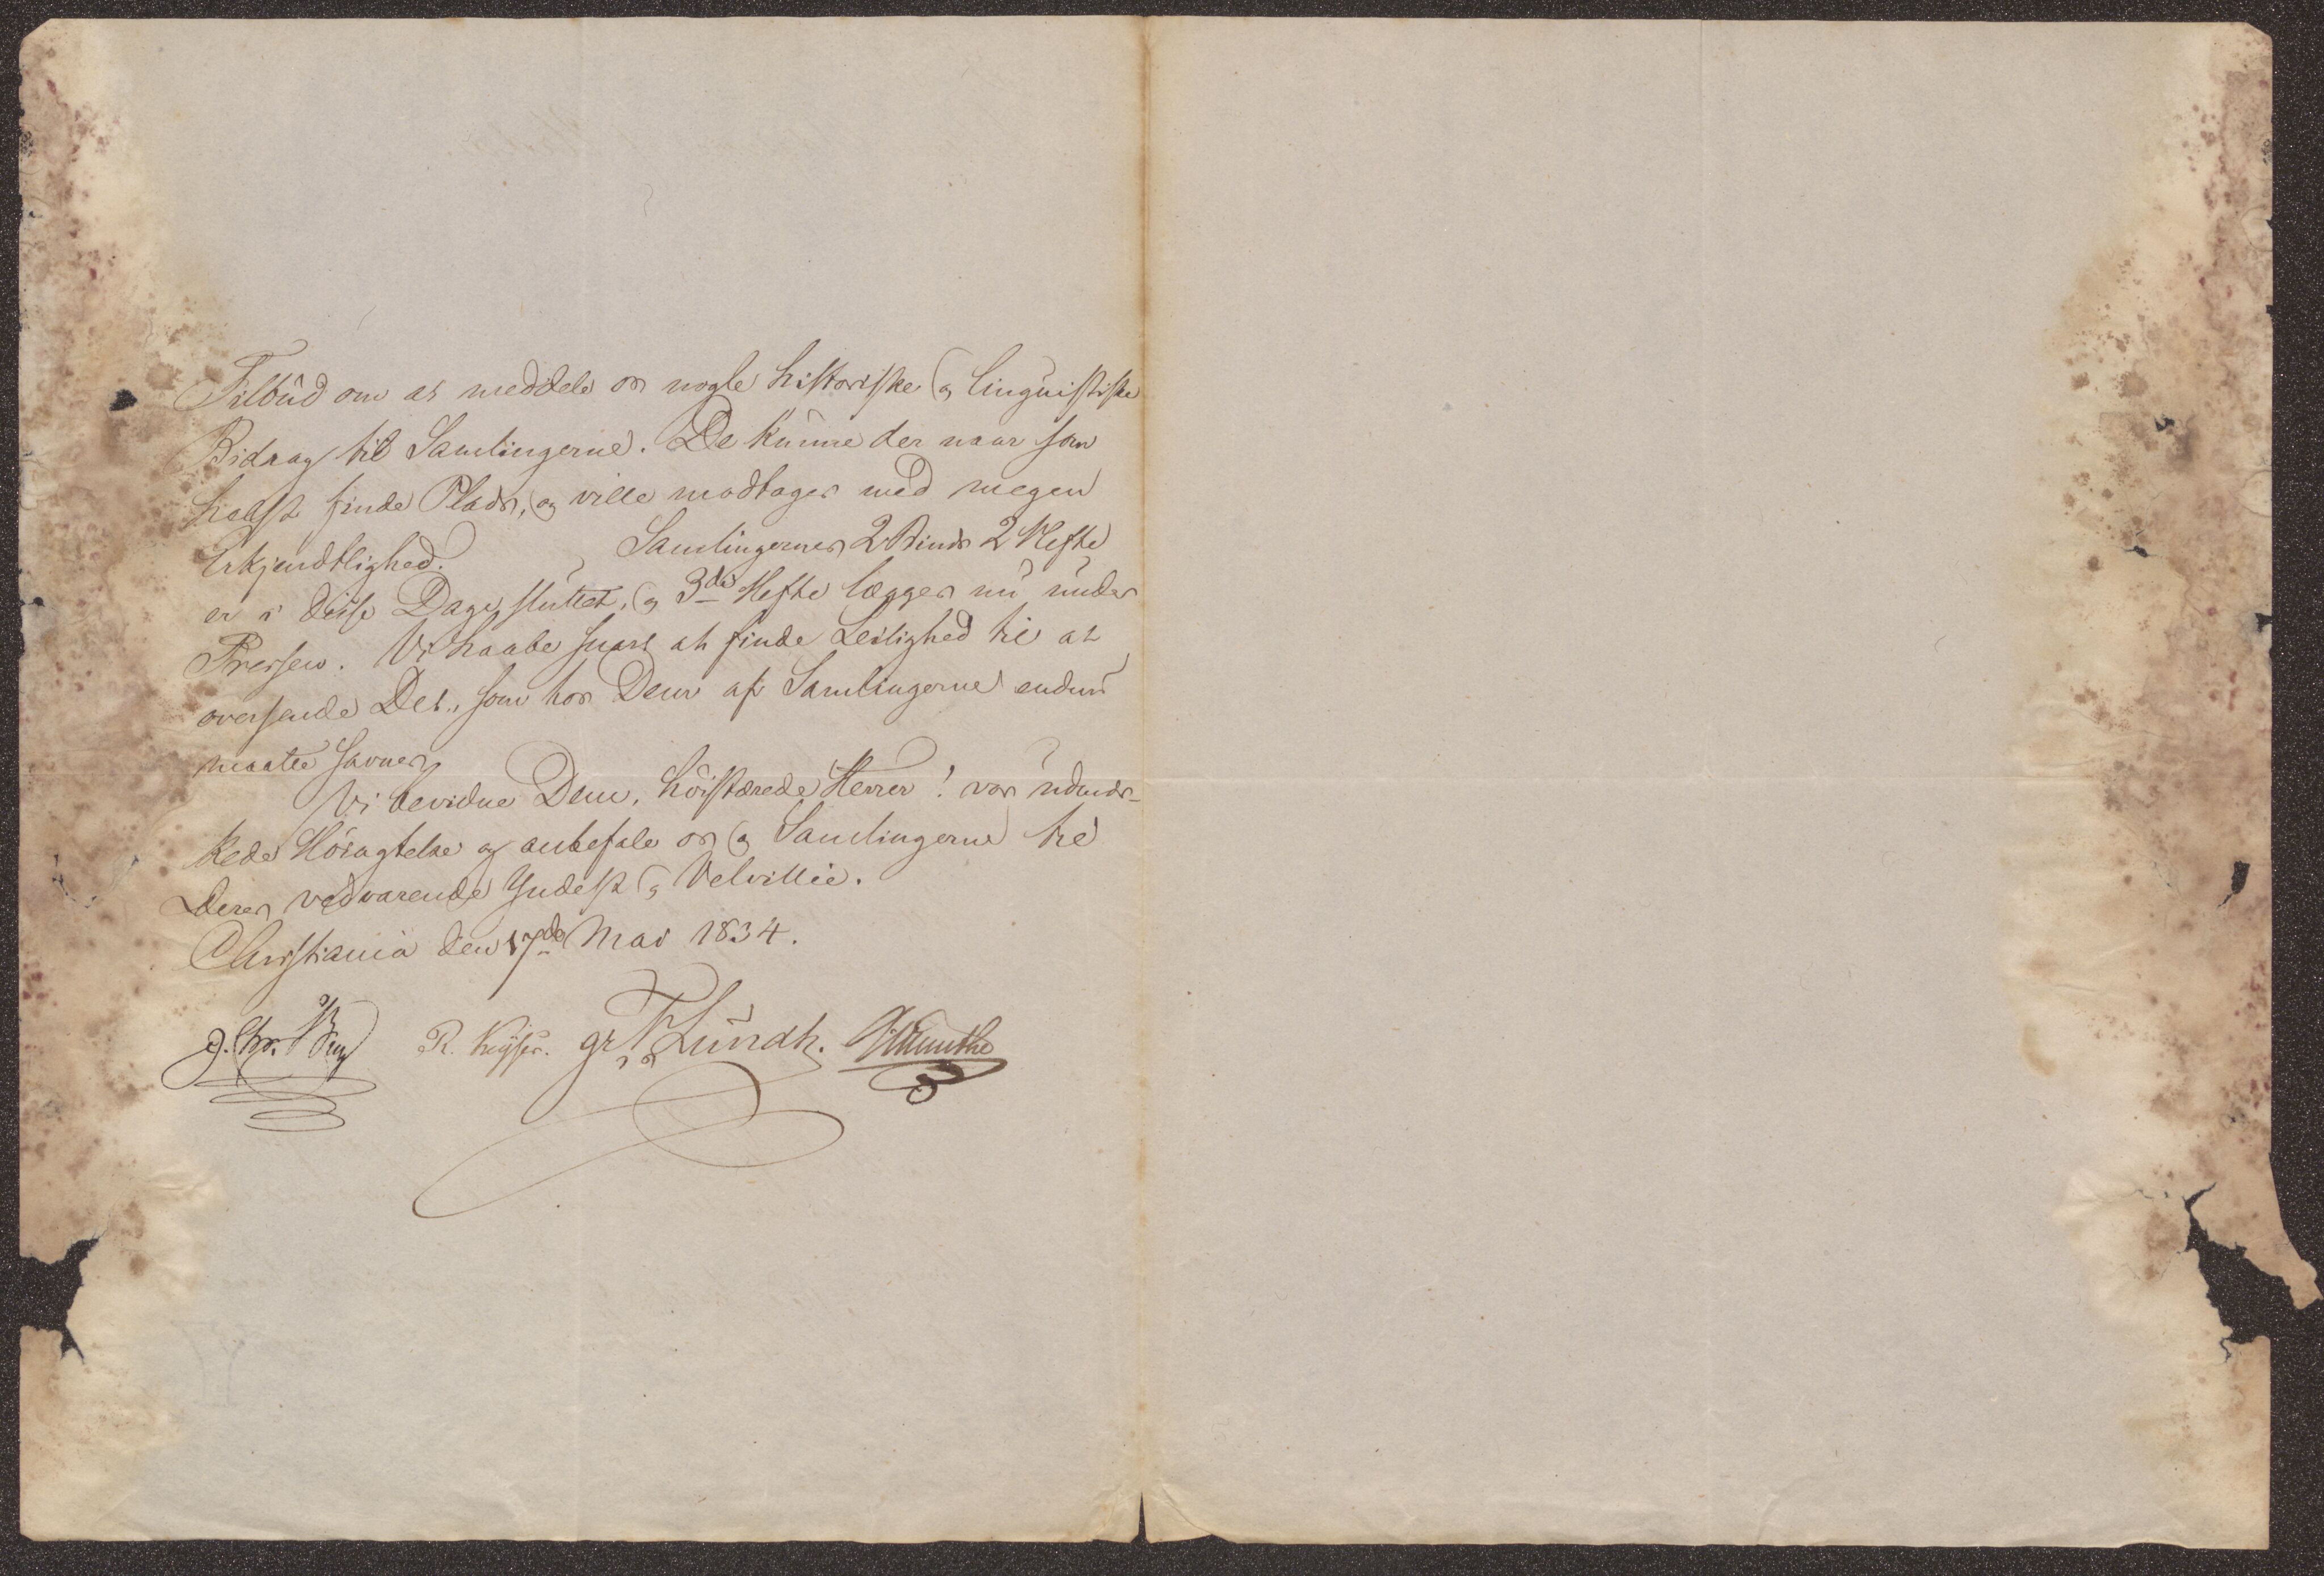 Tilbud om at meddele os nogle historiske og linguistiske
Bidrag til Samlingerne. De kunne der naar som
helst finde Plads, og ville modtages med megen
Erkjendtlighed. Samlingernes 2 Binds 2 Hefte
er i disse Dage sluttet, og 3die Hefte lægges nu under
Pressen. Vi haabe snart at finde Leilighed til at
oversende Det, som hos Dem af Samlingerne endnu
maatte savnes.
Vi bevidne Dem, höistærede Herrer! vor udmær-
kede Höiagtelse og anbefale os og Samlingerne til
Deres vedvarende Yndest og Velvillie.
Christiania den 17de Mai 1834.
J. Chr. Berg R. Keyser. Gr F Lundh. G Munthe